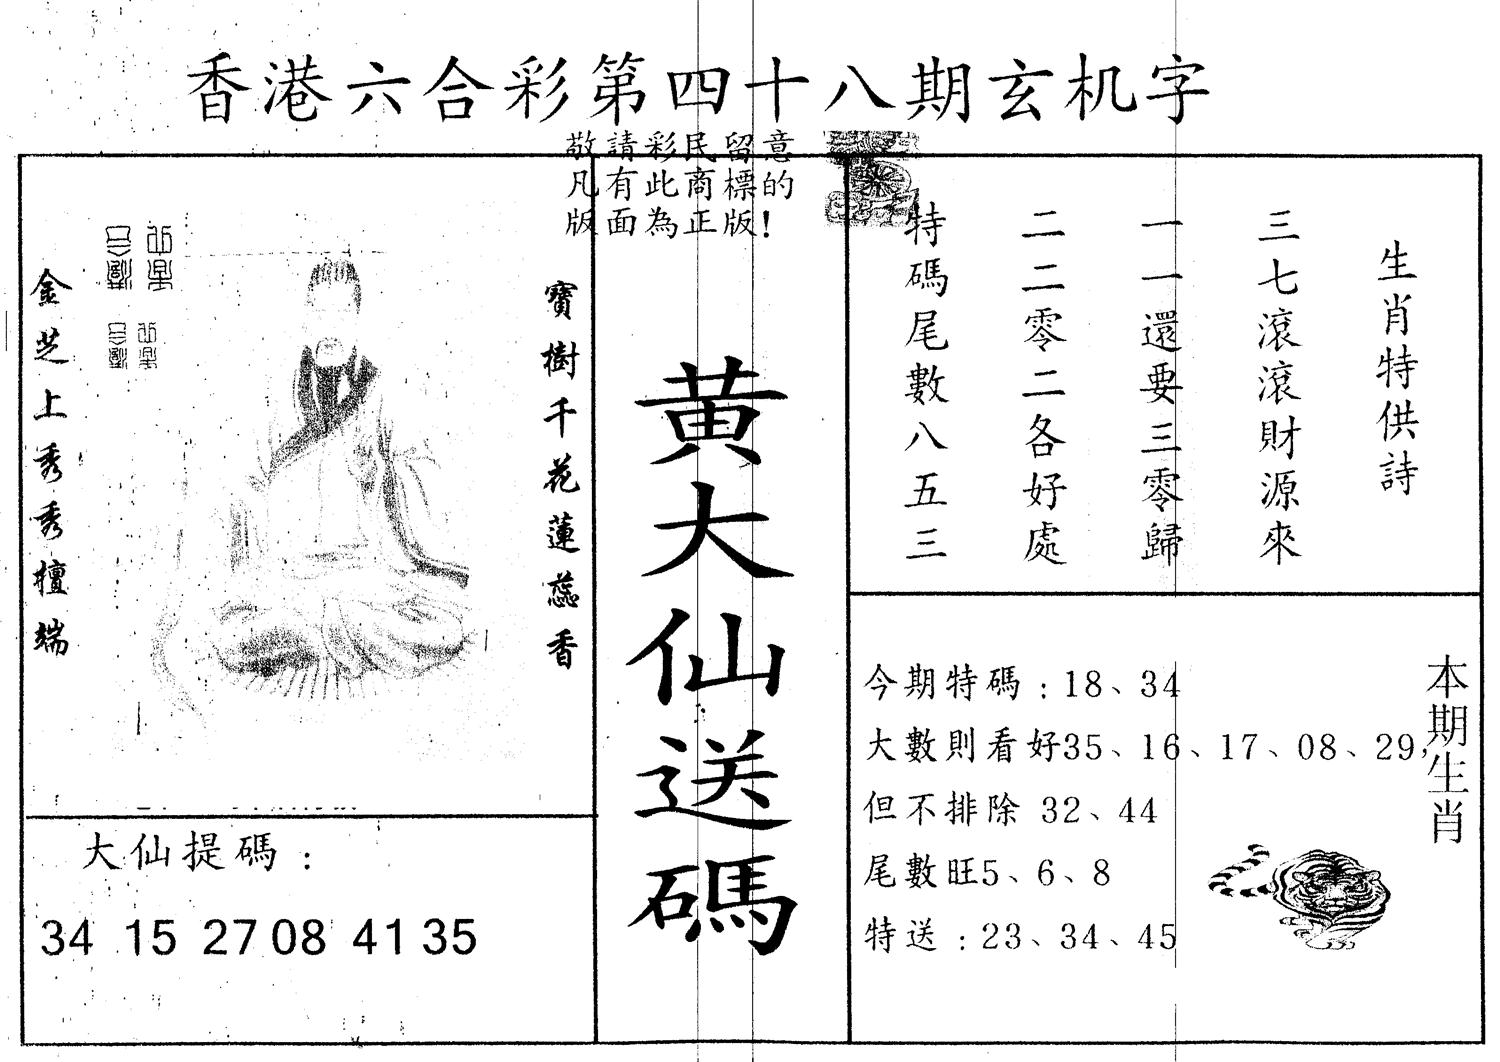 香港六合彩第四十八期玄机字
敬請彩民留意
凡有此商標的
版面為正版!
生肖特供詩
三七滾滾財源來
一一還要三零歸
二二零二各好處
特碼尾數八五三
黃大仙送碼
寶樹千花蓮蕊香
金芝上秀秀檀端
大仙提碼:
34 15 27 08 41 35
本期生肖
今期特碼:18、34
大數則看好35、16、17、08、29,
但不排除 32、44
尾數旺5、6、8
特送:23、34、45